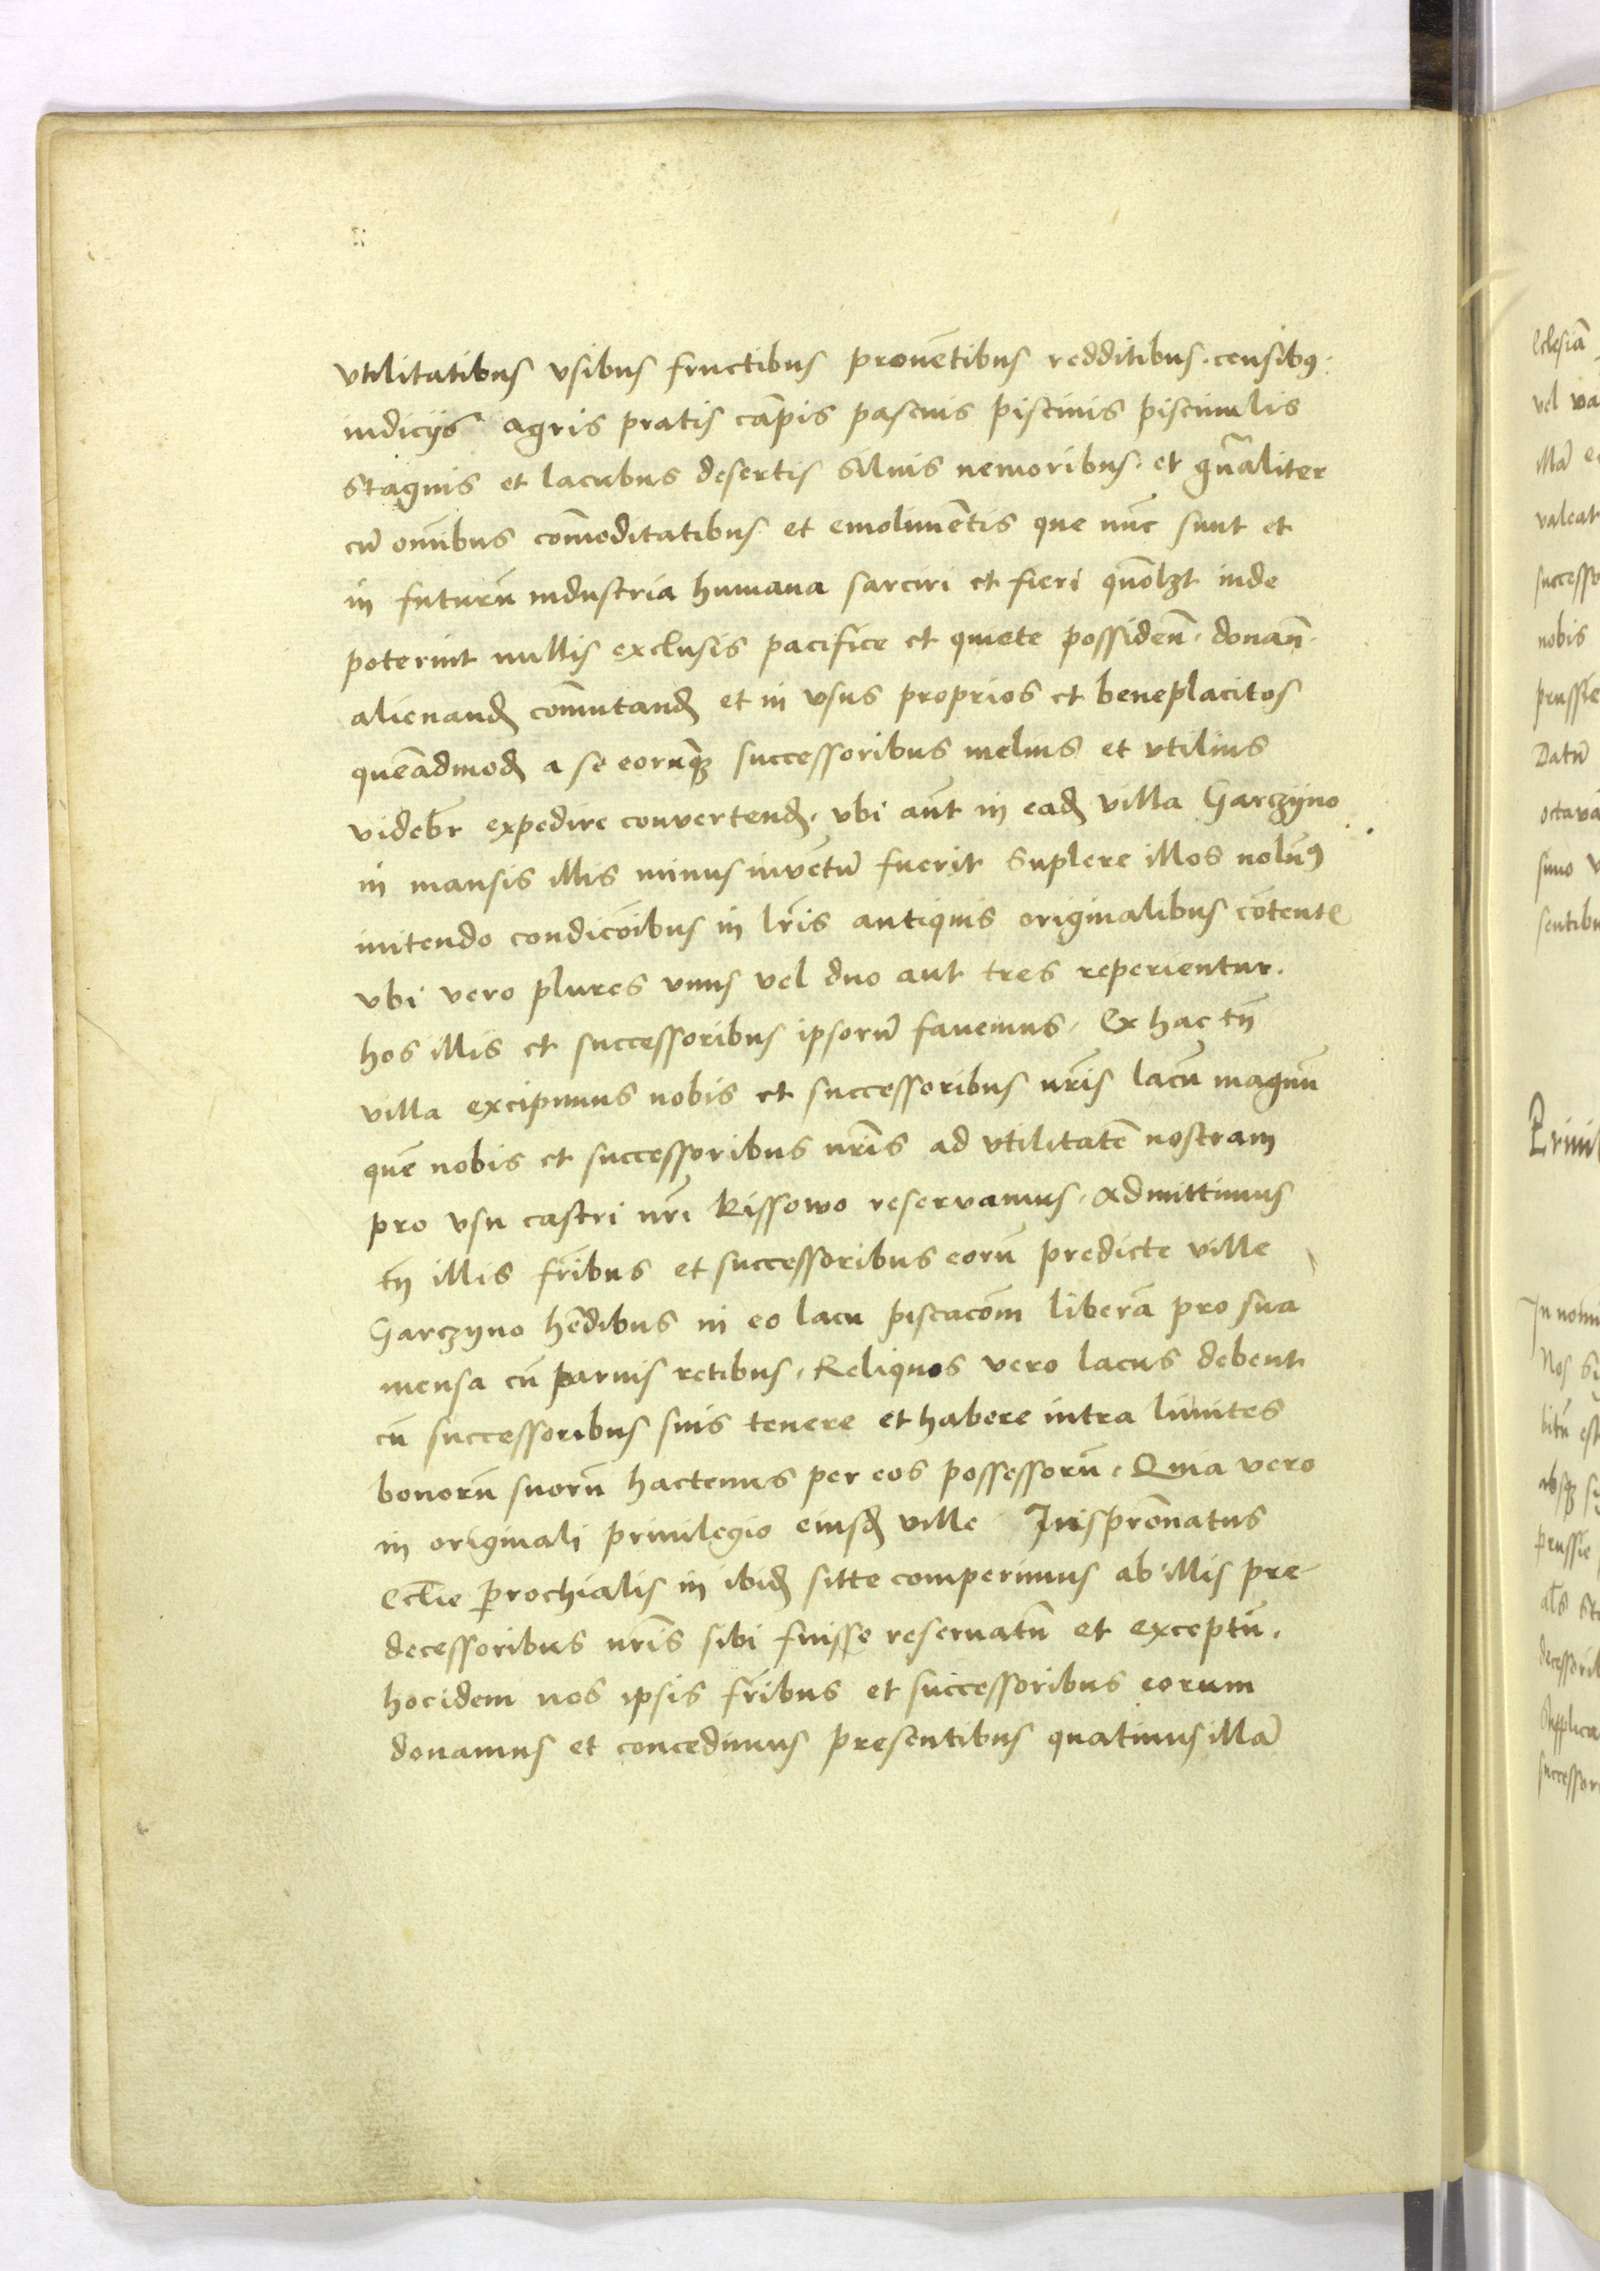 vtilitatibus vsibus fructibus prouētibus redditibus · censibꝯ ·
iudicijs agris pratis cāpis pascuis piscinis piscinulis
stagnis et lacubus desertis siluis nemoribus · et gn̄aliter
cū om̄ibus com̄oditatibus et emolumētis que nūc sunt et
in futurū industria humana sarciri et fieri quōlꝫt inde
poterint nullis exclusis pacifice et quiete possideñ · donañ ·
alienanđ com̄utanđ et in vsus proprios et beneplacitos
quēadmođ a se eorūqꝫ successoribus melius et vtilius
videbr̄ expedire convertenđ · vbi aūt in eađ villa Garczyno
in mansis illis minus invētū fuerit suplere illos nolum̄ꝯ
initendo condicōibus in lr̄is antiquis originalibus cōtentꝭ
vbi vero plures vnus vel duo aut tres reperientur ·
hos illis et successoribus ipsorū fauemus · Ex hac tn̄
villa excipimus nobis et successoribus nr̄is lacū magnū
quē nobis et successoribus nr̄is ad vtilitatē nostram
pro vsu castri nr̄i kissowo reservamus · Admittimus
tn̄ illis fr̄ibus et successoribus eorū predicte ville
Garczyno hēdibus in eo lacu piscacōm liberā pro sua
mensa cū paruis retibus · Reliquos vero lacus debent
cū successoribus suis tenere et habere intra limites
bonorū suorū hactenus per eos possessorū · Quia vero
in originali priuilegio eiusđ ville Iuspr̄onatus
Eccl̄ie ꝑrochialis in ibiđ sitte comperimus ab illis pre-
decessoribus nr̄is sibi fuisse reseruatū et exceptū ·
hocidem nos ipsis fr̄ibus et successoribus eorum
donamus et concedimus presentibus quatinus illā
eclesiā
vel
illā
valeat
nobis
prussie
Datū
Priui
In nomi
Nos
prussie